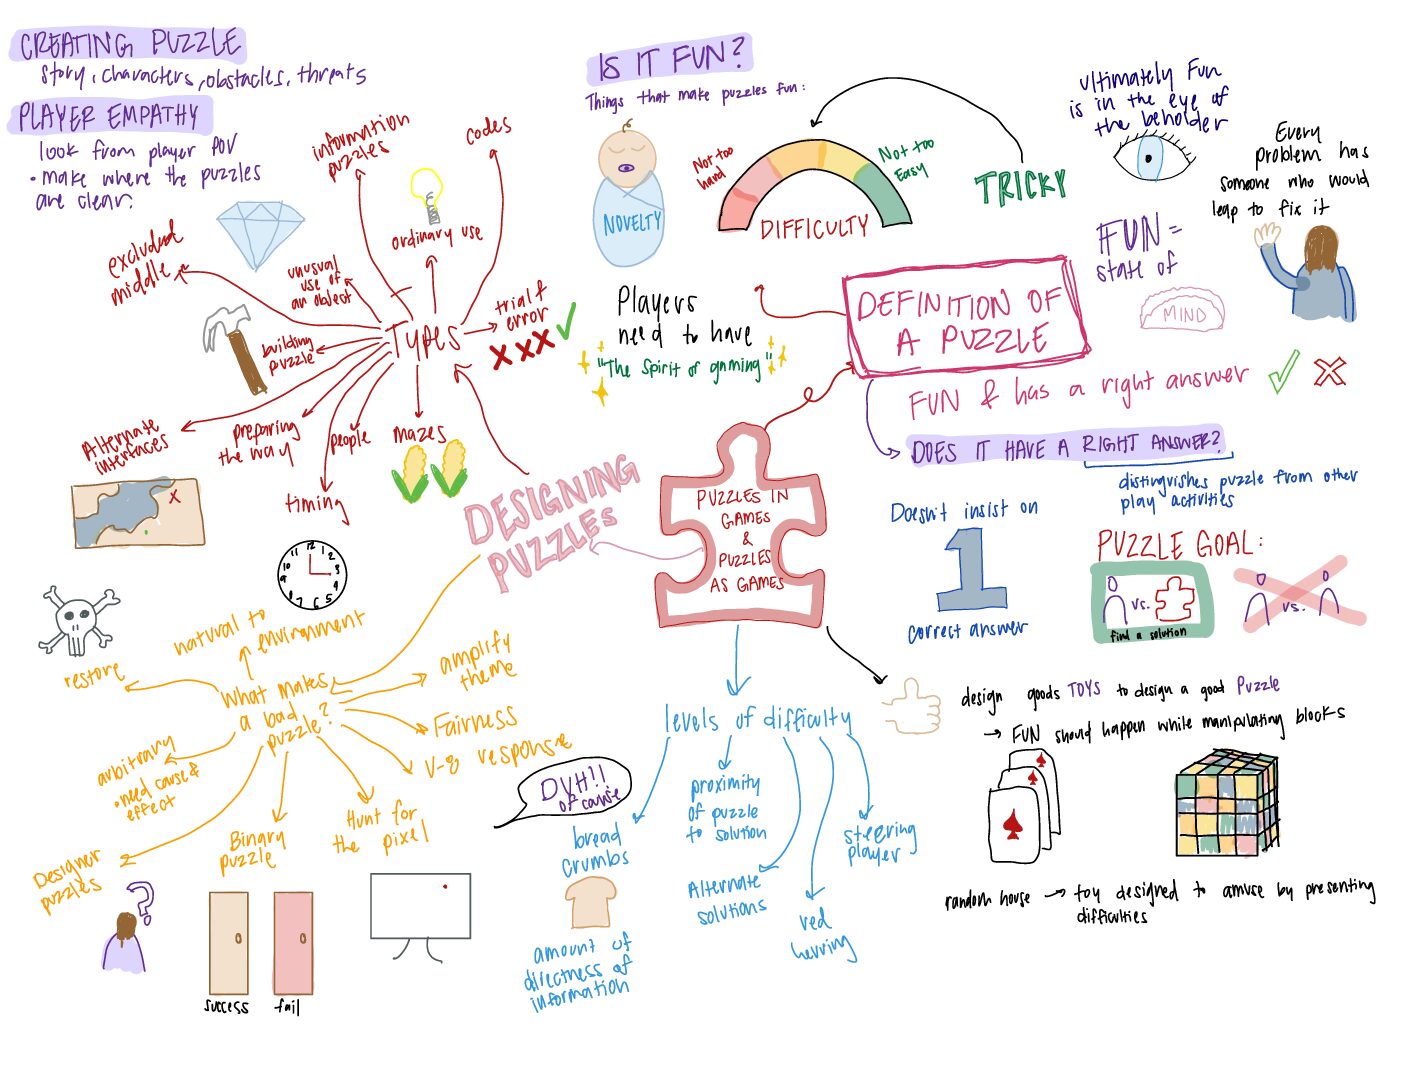 CREATING PUZZLE
story, characters, obstacles, threats
PLAYER EMPATHY
look from player POV
• make where the puzzles
are clear.
IS IT FUN?
Things that make puzzles fun:
NOVELTY
Not too
hard
Not too
Easy
DIFFICULTY
TRICKY
ultimately Fun
is in the eye of
the beholder
Every
problem has
someone who would
leap to fix it
FUN =
state of
MIND
Players
need to have
"The spirit of gaming"
DEFINITION OF
A PUZZLE
FUN & has a right answer
DOES IT HAVE A RIGHT ANSWER?
distinguishes puzzle from other
play activities
Doesn't insist on
1
correct answer
PUZZLE GOAL:
vs.
find a solution
vs.
Types
excluded
middle
information
puzzles
codes
ordinary use
unusual
use of
an object
trial &
error
building
puzzle
Alternate
interfaces
preparing
the way
people
mazes
timing
12
1
2
3
4
5
6
7
8
9
10
11
DESIGNING
PUZZLES
PUZZLES IN
GAMES
&
PUZZLES
AS GAMES
What makes
a bad
puzzle?
natural to
environment
restore
arbitrary
• need cause &
effect
Designer
puzzles
?
Binary
puzzle
success
fail
Hunt for
the pixel
amplify
theme
Fairness
V-8 response
DUH!!
of cause
levels of difficulty
bread
crumbs
amount of
directness of
information
proximity
of puzzle
to solution
Alternate
solutions
red
herring
steering
player
design goods TOYS to design a good Puzzle
→ FUN should happen while manipulating blocks
random house → toy designed to amuse by presenting
difficulties